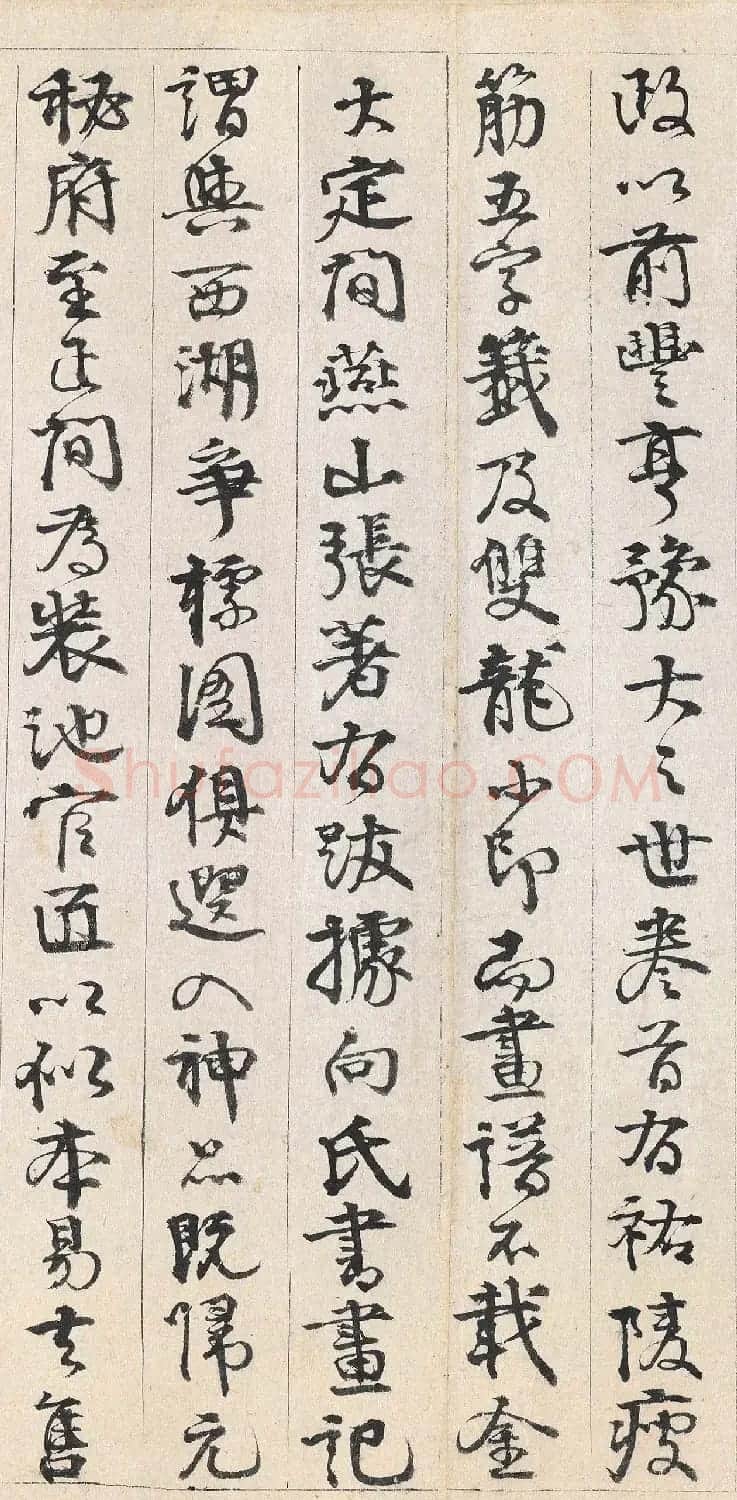 政以前豐亨豫大之世卷首有祐陵瘦
筋五字籖及雙龍小印而畫譜不載金
大定間燕山張著有跋據向氏書畫記
謂與西湖爭標圖俱選入神品既歸元
秘府至正間為裝池官匠以似本易去售
Shufaziliao.COM